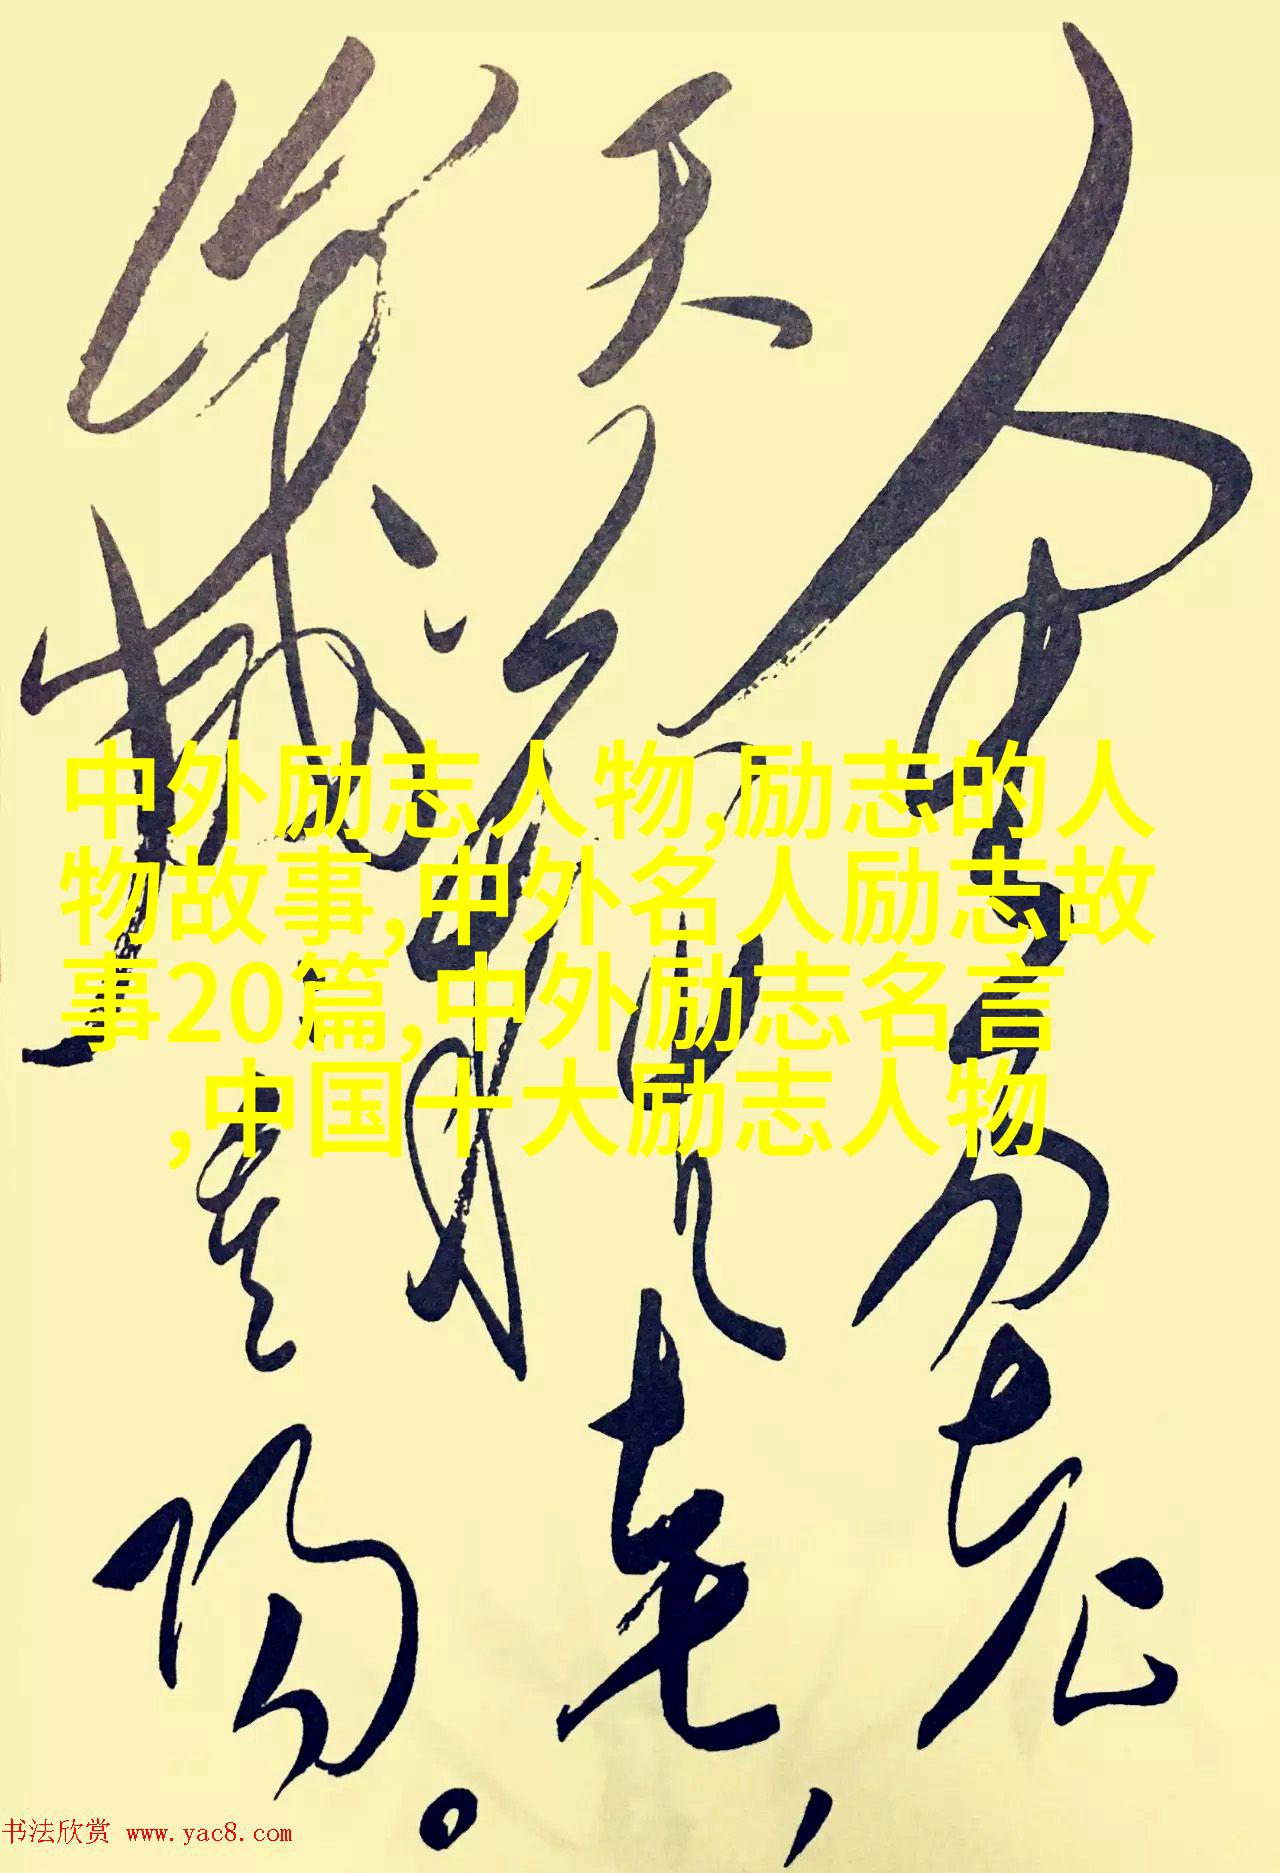 人生易老
天難老，
歲歲重陽。
中外励志人物,励志的人
物故事,中外名人励志故
事20篇,中外励志名言
,中国十大励志人物
书法欣赏 www.yac8.com